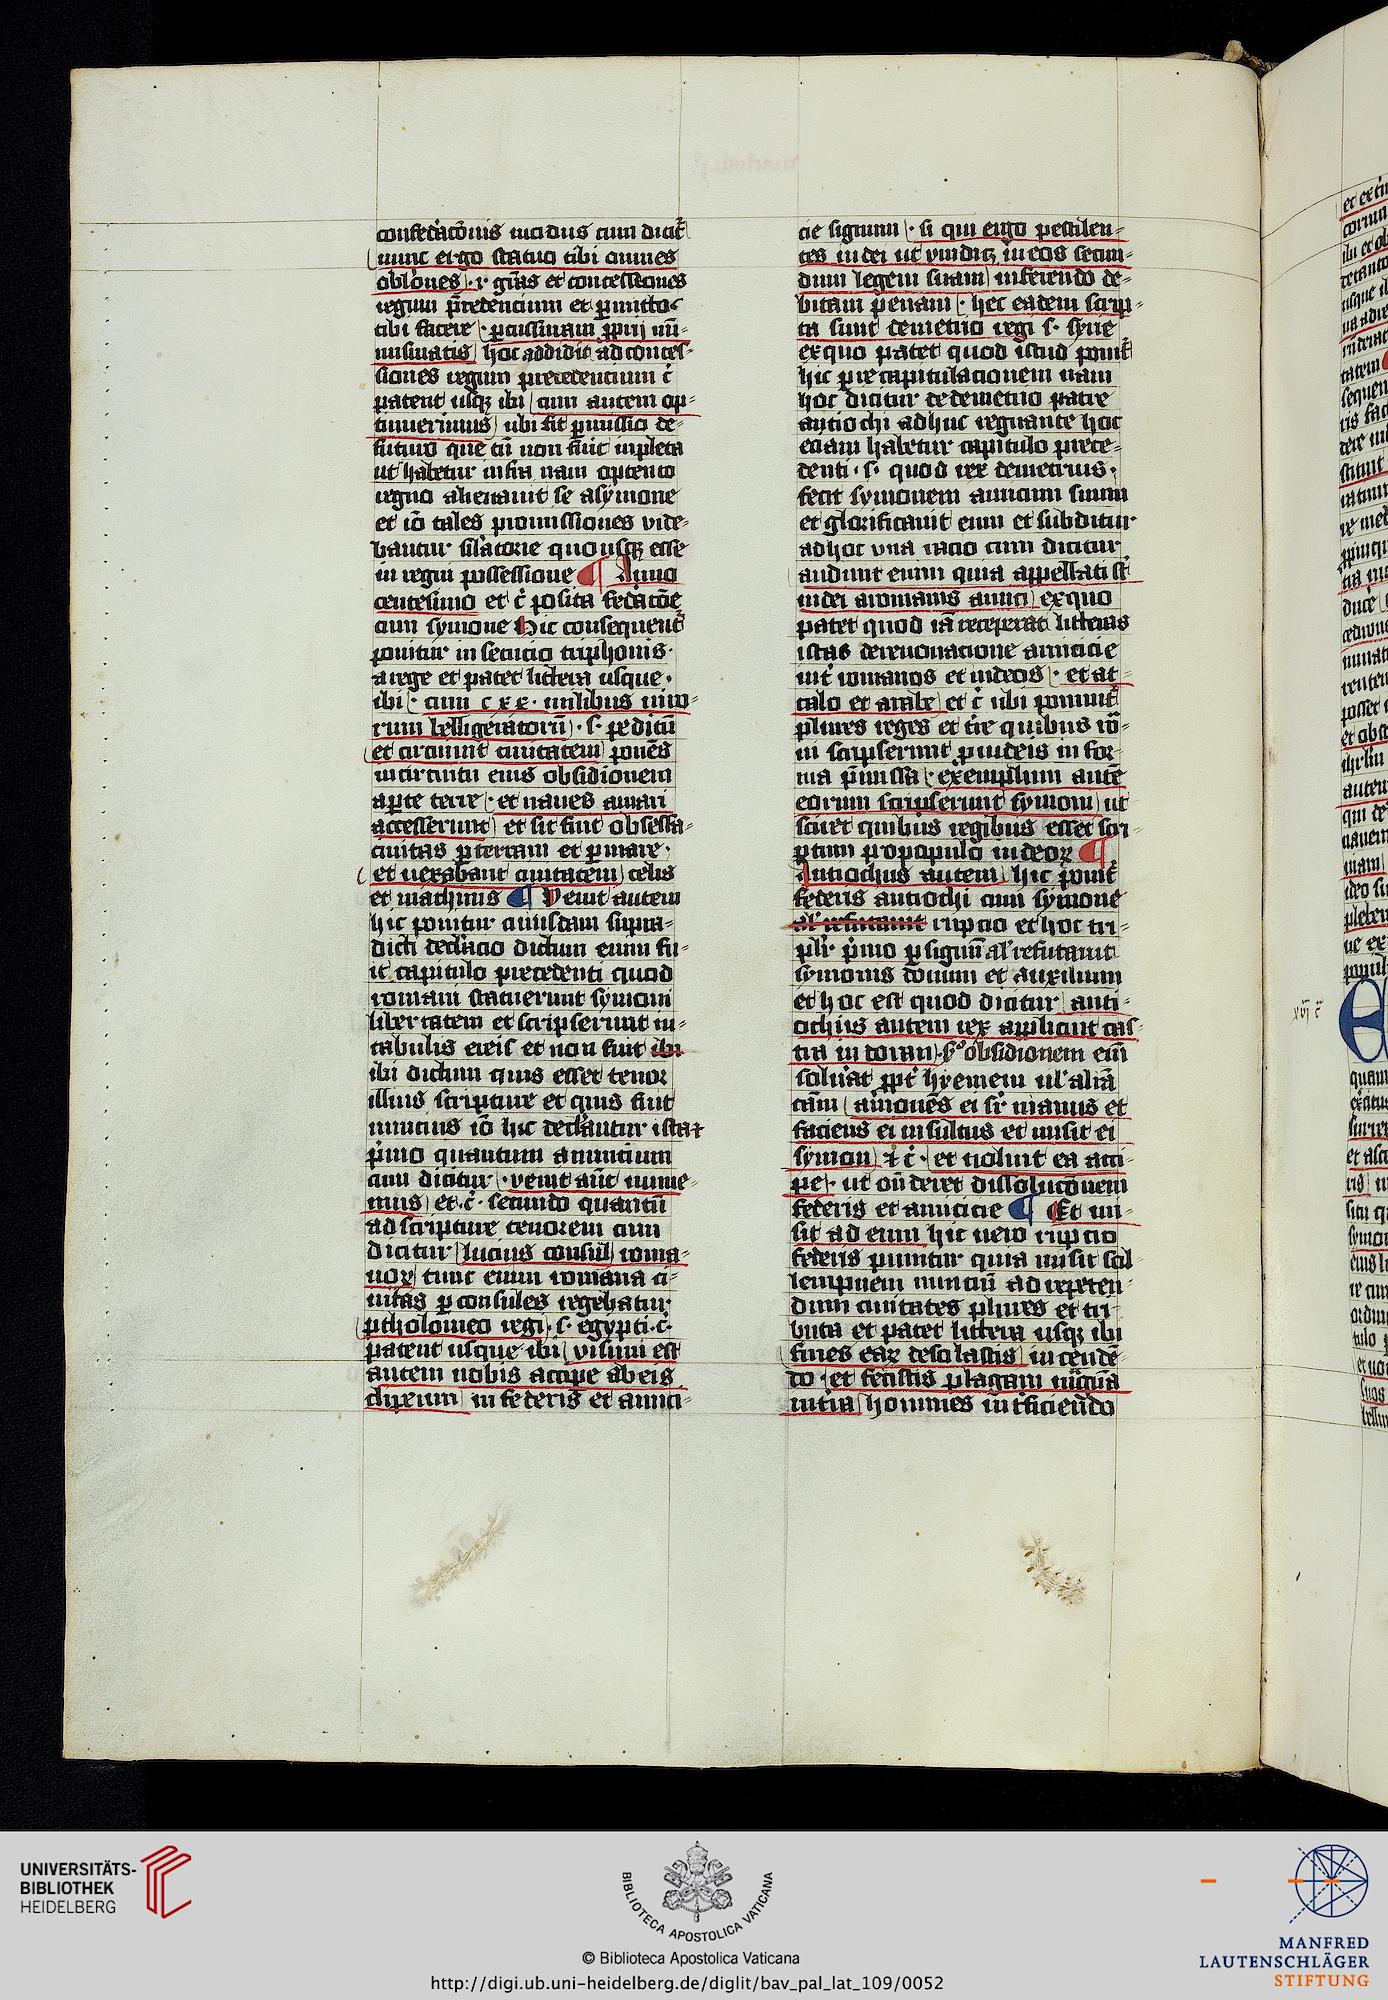 confedãcõnis iudius cum dicit᷑
nunc ergo statuo tibi omnes
oblõnes · r̄ gr̃as et concessiones
regum p̃redencium et p̃mitto
tibi facere · p̃cussuram p̃prij nũ-
nusmatis hoc addidit ad conces-
siones regum precedencium c̃
patent usqꝫ ibi cum autem op-
tinuerimus ubi fit p̃missio de-
futuro que tñ non fuit inpleta
ut habetur infra nam optento
regno alienauit se a symone
et iõ tales promissiones vide-
bantur silatorie quousqꝫ esse
in regni possessione ¶ Anno
centesimo et c̃ posita fedãcõe
cum symone Hic consequent᷑
ponitur insecucio triphonis·
a rege et patet littera usque·
ibi · cum c x x · milibus uiro-
rum belligeratorũ · s· peditũ
et circuiuit ciuitatem ponẽs
in circuitu eius obsidionem
a p̃te terre · et naues a mari
accesserunt et sic fuit obsessa-
ciuitas p̃ terram et p̃ mare·
et uexabant ciuitatem telis
et machinis ¶ Venit autem
hic ponitur cuiusdam supra-
dicti declãcio dictum enim fu-
it capitulo precedenti quod
romani statuerunt symoni
libertatem et scripserunt in-
tabulis ereis et non fuit ibi
ibi dictum quis esset tenor
illius scripture et quis fuit
nuncius iõ hic declãutur ista
p̃imo quantum a nuncium
cum dicitur · venit aũt nume-
nius et·c̃· secundo quantũ
ad scripture tenorem cum
dicitur lucius consul roma-
noꝝ tunc enim romana ci-
uitas p̃ consules regebatur
ptholomeo regi · s· egypti·c̃·
patent usque ibi visum est
autem nobis accipe ab eis
clipeum in federis et amici-
cie signum · si qui ergo pestilen-
tes iudei ut vindicꝫ in eos secun-
dum legem suam inferendo de-
bitam penam · hec eadem scrip-
ta sunt demetrio regi s· syrie
ex quo patet quod istud ponit᷑
hic p̃ recapitulacionem nam
hoc dicitur de demetrio patre
antiochi adhuc regnante hoc
eciam habetur capitulo prece-
denti · s· quod rex demetrius·
fecit symonem amicum suum
et glorificauit eum et subditur
ad hoc vna racio cum dicitur
audiunt enim quia appellati st̃
iudei a romanis amici ex quo
patet quod iã receperat litteras
istas de renouacione amicicie
int̃ romanos et iudeos · et at-
talo et arabe et c̃ ubi ponunt᷑
plures reges et t̃re quibus rõ-
ni scripserunt p̃ iudeis in for-
ma p̃missa · exemplum autẽ
eorum scripserunt symoni ut
sciret quibus regibus esset scri
ptum pro populo iudeoꝝ ¶
Antiochus autem hic ponit᷑
federis antiochi cum symone
al' refutauit rupcio et hoc tri-
pl'r· p̃imo p̃ signũ al' refutauit
symonis donum et auxilium
et hoc est quod dicitur anti-
ochus autem rex applicuit cas-
tra in doram · s̊ obsidionem eñi
soluat p̃pt̃ hyemem ul' aliã
cãm amouẽs ei sr̃ manus et
faciens ei insultus et misit ei
symon ⁊ c̃· et noluit ea acci
pe · ut oñderet dissolucõnem
federis et amicicie ¶ Et mi-
sit ad eum hic uero rupcio
federis punitur quia misit sol-
lempnem nunciũ ad repeten-
dum ciuitates plures et tri
buta et patet littera usqꝫ ibi
fines eaꝝ desolastis in cendẽ-
do · et fecistis plagam magña
in tra homines int̃ficiendo
xvj c̃
UNIVERSITÄTS-
BIBLIOTHEK
HEIDELBERG
BIBLIOTECA APOSTOLICA VATICANA
© Biblioteca Apostolica Vaticana
http://digi.ub.uni-heidelberg.de/diglit/bav_pal_lat_109/0052
MANFRED
LAUTENSCHLÄGER
STIFTUNG